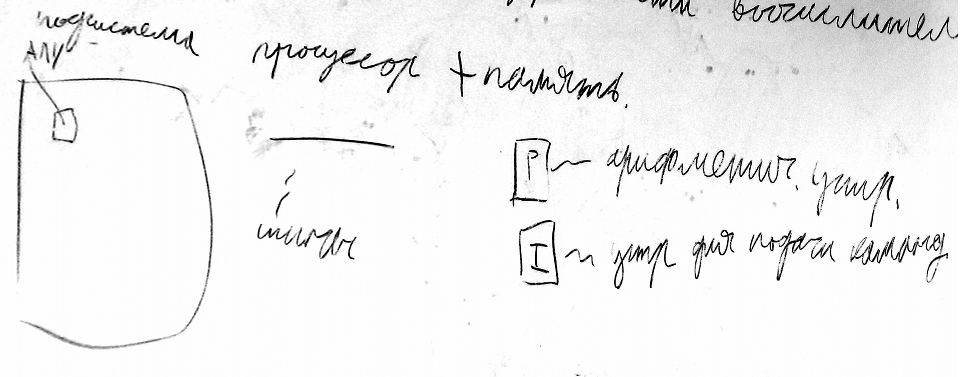 вычислител
подсистема
АЛУ
процессор + память.
P ~ арифметич. устр.
I ~ устр для подачи команд